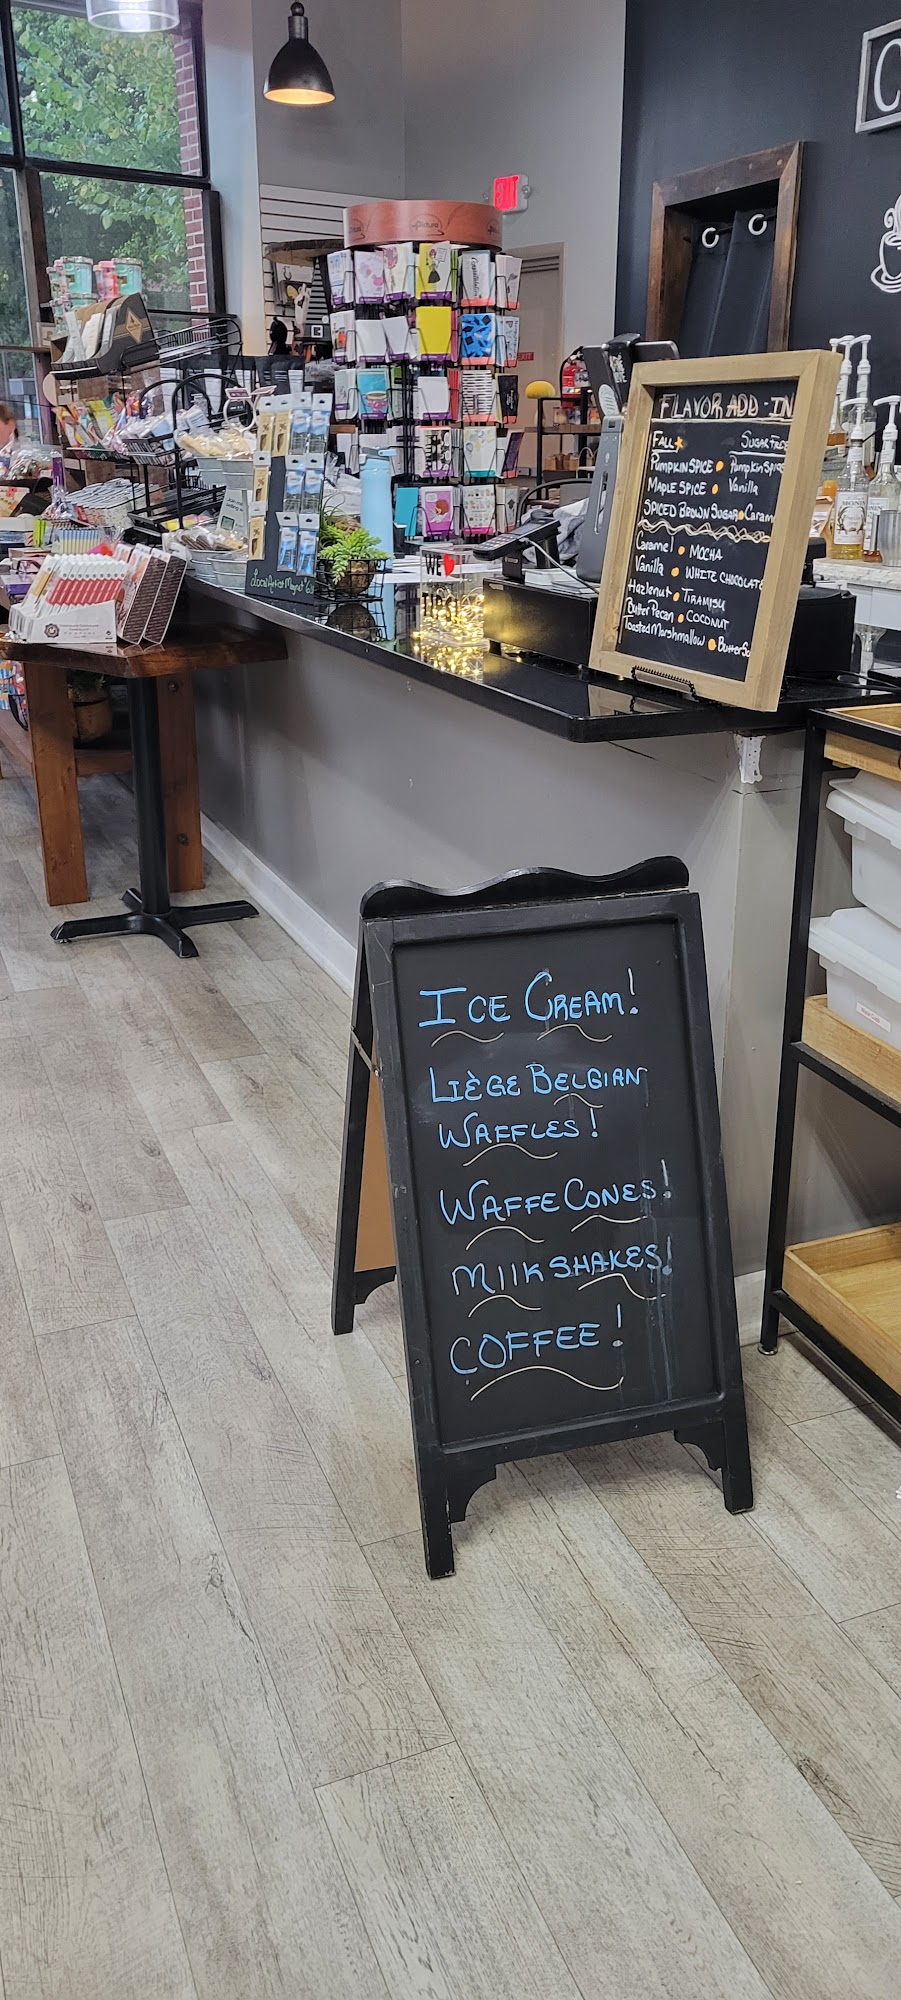 C
EXIT
FLAVOR ADD-IN
FALL SUGAR FREE
PUMPKIN SPICE Pumpkin Spice
MAPLE SPICE Vanilla
SPICED BROWN SUGAR Caram
Caramel MOCHA
Vanilla WHITE CHOCOLATE
Hazelnut TIRAMISU
Butter Pecan COCONUT
Toasted Marshmallow Butter Sc
WE
Local Artist Magnets
ICE CREAM!
LIÈGE BELGIAN
WAFFLES!
WAFFE CONES!
MILKSHAKES!
COFFEE!